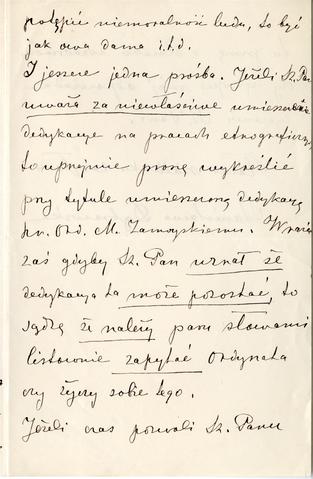 potępić niemoralność ludu, to być
jak owa dama i.t.d.
I jeszcze jedna prośba. Jeżeli Sz. Pan
uważa za niewłaściwe umieszczanie
dedykacye na pracach etnograficznych,
to uprzejmie proszę wykreślić
przy tytule umieszczoną dedykacyą
hr. Ord. M. Zamoyskiemu. W razie
zaś gdyby Sz. Pan uznał że
dedykacya ta może pozostać, to
sądzę że należy paru słowami
listownie zapytać Ordynata
czy życzy sobie tego.
Jeżeli czas pozwoli Sz. Panu